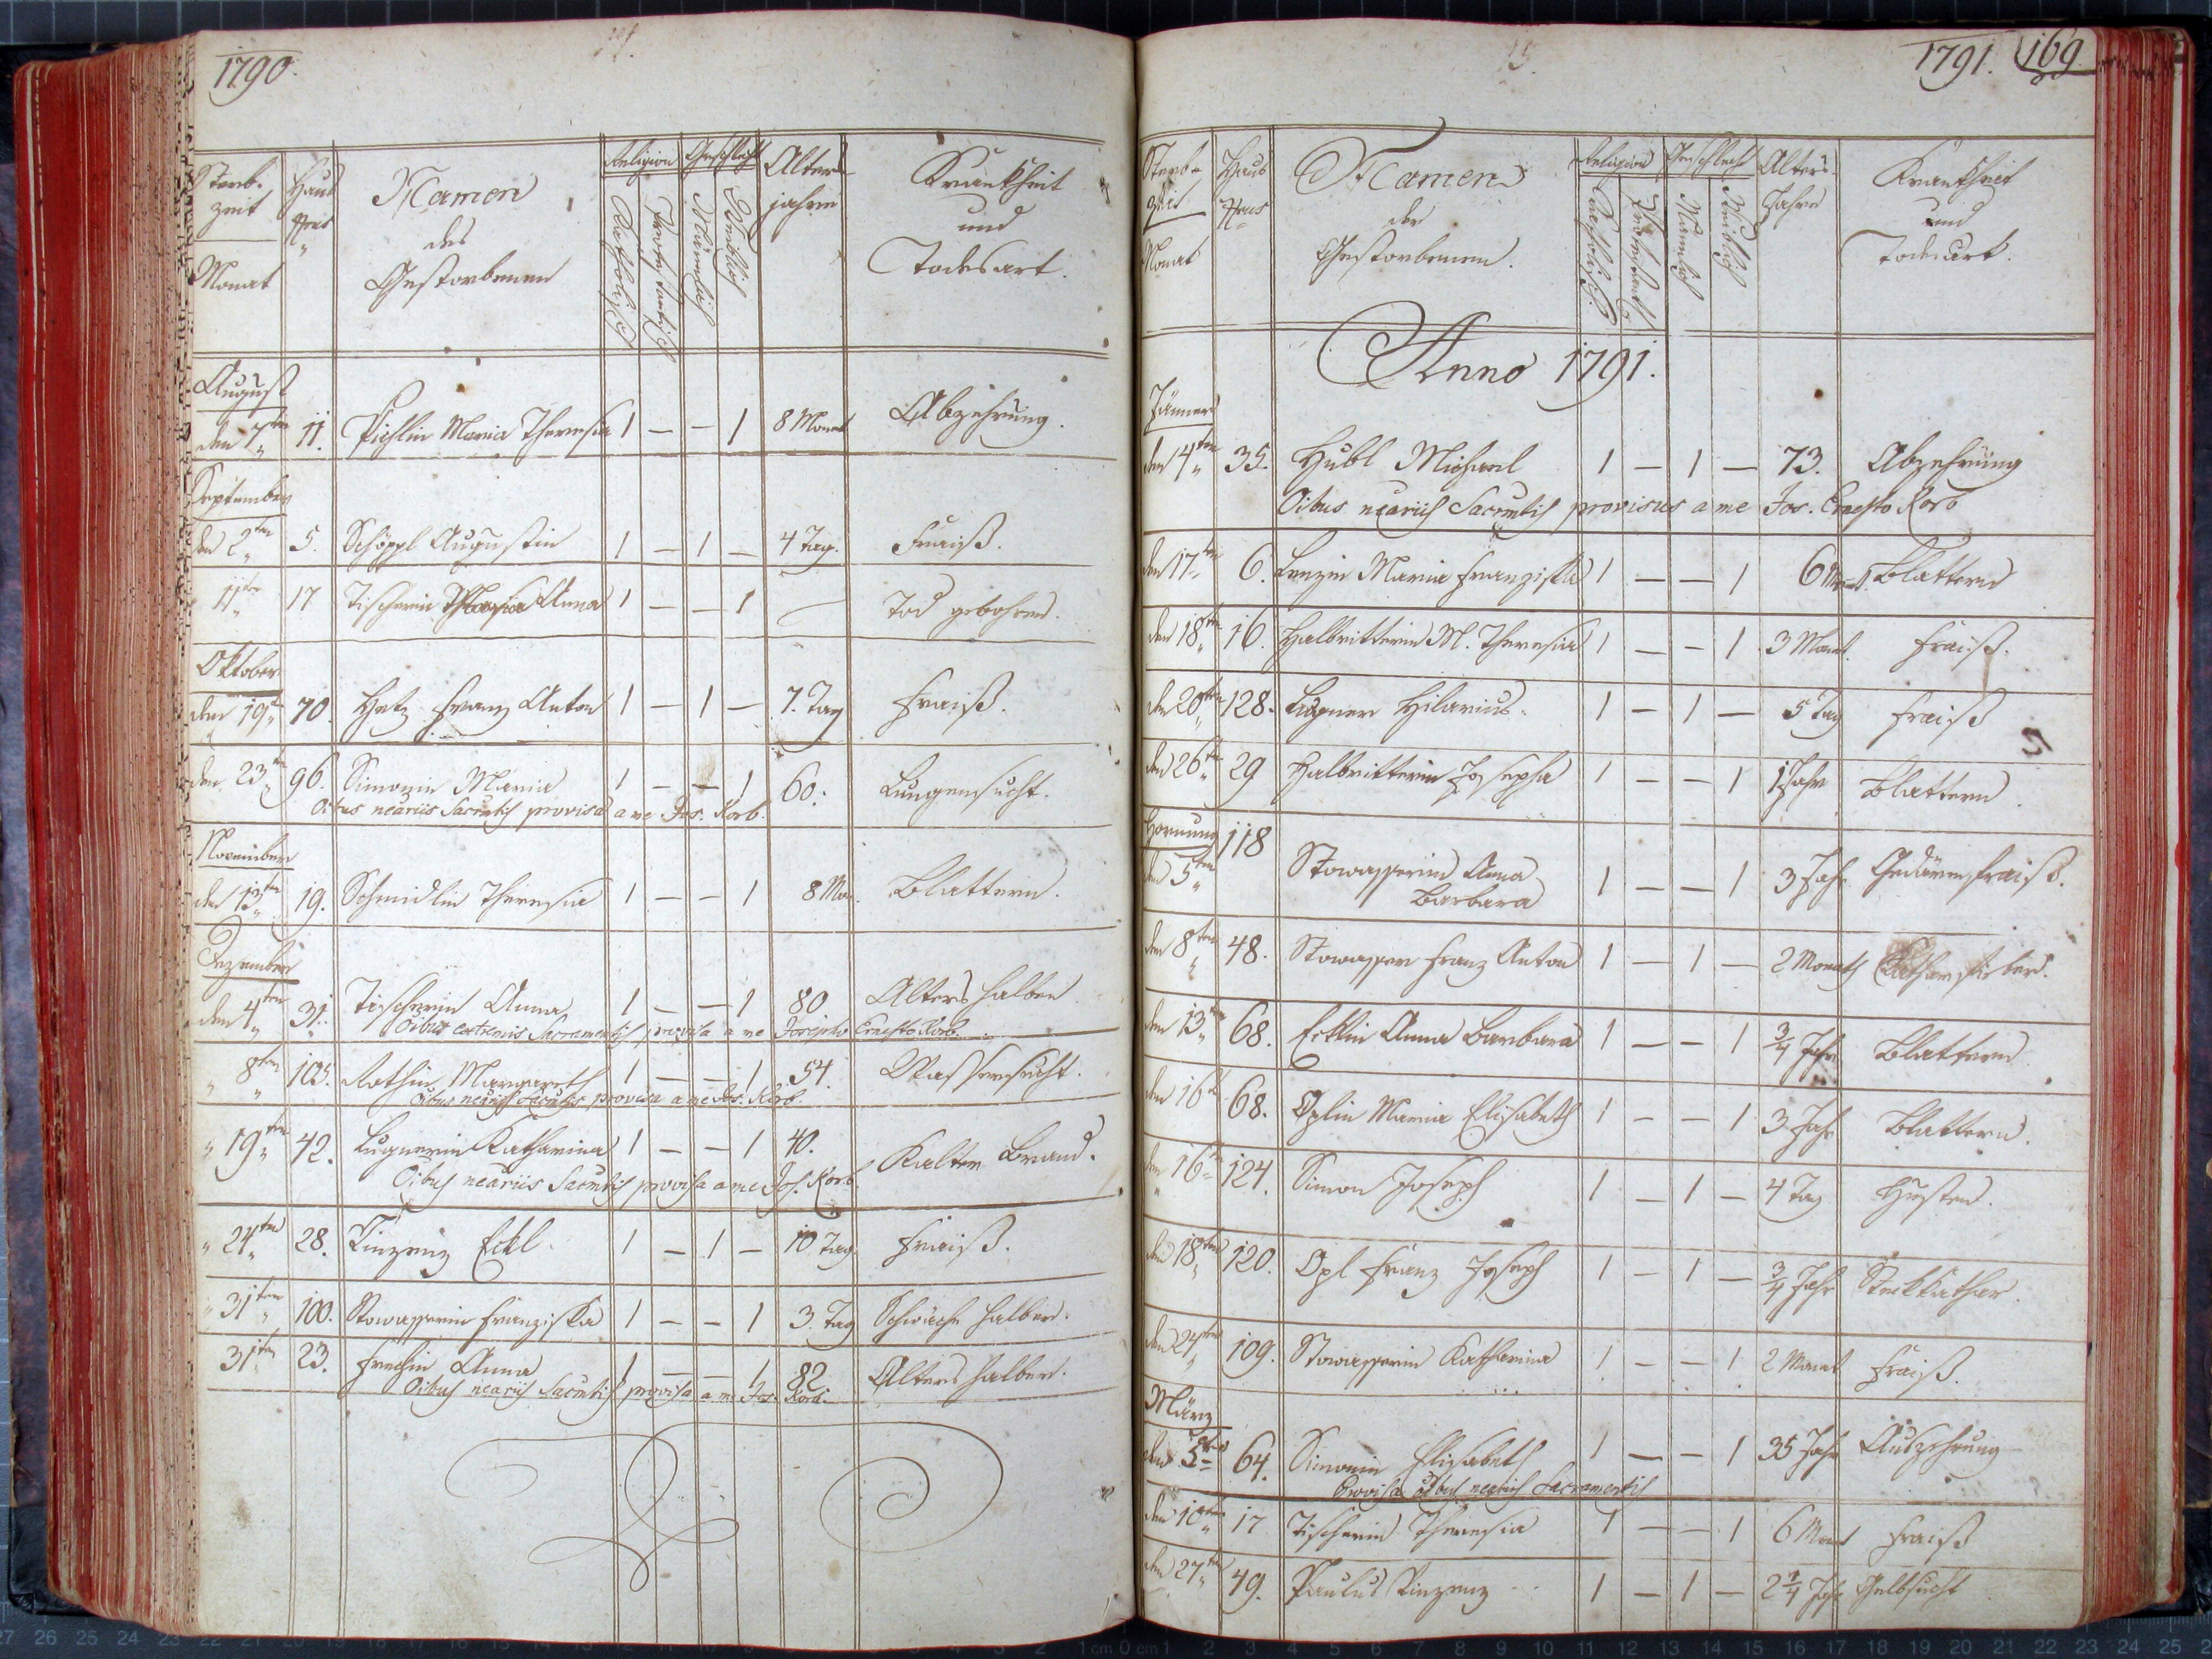 1790.
Sterb-
zeit
Monat
Haus
Nrus
Namen
des
Gestorbenen
Religion
Katholisch
Protestantisch
Geschlecht
Männlich
Weiblich
Alters
jahre
Krankheit
und
Todesart.
August
den 7ten 11. Pichlin Maria Theresia 1 — — 1 8 Monat Abzehrung.
September
den 2ten 5. Schöppl Augustin 1 — 1 — 4 Tag. Fraiß.
11ten 17 Tischerin Anna 1 — — 1 Tod gebohren.
Oktober
den 19t 70. Hetz Franz Anton 1 — 1 — 7. Tag Fraiß.
den 23ten 96. Simonin Maria 1 — — 1 60. Lungensucht.
Oibus neariis Sacmtis provisa a me Jos. Korb.
November
den 13ten 19. Schmidlin Theresia 1 — — 1 8 Mon. Blattern.
Dezember
den 4ten 31. Tischerin Anna 1 — — 1 80 Alters halben
Oibus extremis Sacramentis provisa a me Josepho Ernesto Korb.
" 8ten 105. Rothin Margareth 1 — — 1 54. Wassersucht.
Oibus neariis Sacmtis provisa a me Jos. Korb.
" 19ten 42. Lugnerin Katharina 1 — — 1 40. Kalter Brand.
Oibus neariis Sacmtis provisa a me Jos. Korb.
" 24ten 28. Vinzenz Eckl. 1 — 1 — 10 Tag. Fraiß.
" 31ten 100. Stowasserin Franziska 1 — — 1 3. Tag Schwäche halber.
31ten 23. Anna 1 — — 1 82 Alters halber.
Oibus neariis Sacmtis provisa a me Jos. Korb.
1791. 169.
Sterb-
zeit
Monat
Haus
Nrus
Namen
der
Gestorbenen.
Religion
Katholisch
Protestant
Geschlecht
Männlich
Weiblich
Alters
Jahre
Krankheit
und
Todesart.
Anno 1791.
Jänner
den 14ten 35. Hubl Michael 1 — 1 — 73. Abzehrung
Oibus neariis Sacmtis provisus a me Jos. Ernesto Korb
den 17ten 6. Lenzin Maria Franziska 1 — — 1 6 Monat. Blattern
den 18ten 16. Halbritterin M. Theresia 1 — — 1 3 Monat. Fraiß.
den 20ten 128. Lugner Hilarius. 1 — 1 — 5 Tag Fraiß
den 26ten 29 Halbritterin Josepha 1 — — 1 1 Jahr Blattern.
Hornung
den 5ten 118 Stowasserin Anna
Barbara 1 — — 1 3 Jahr Gedärmfraiß.
den 8ten 48. Stowasser Franz Anton 1 — 1 — 2 Monath
den 13ten 68. Ecklin Anna Barbara 1 — — 1 3/4 Jahr Blattern
den 16t 68. Oplin Maria Elisabeth 1 — — 1 3 Jahr Blattern.
den 16t 124. Simon Joseph 1 — 1 — 4 Tag Husten.
den 18ten 120. Opl Franz Joseph 1 — 1 — 3/4 Jahr Steckkathar.
den 24ten 109. Stowasserin Katharina 1 — — 1 2 Monat Fraiß.
März
den 64. Simonin Elisabeth 1 — — 1 35 Jahr Auszehrung
Provisa oibus neariis Sacramentis
den 10ten 17 Tischerin Theresia 1 — — 1 6 Monat Fraiß
den 27ten 49. Paulus Vinzenz 1 — 1 — 2 1/4 Jahr Gelbsucht